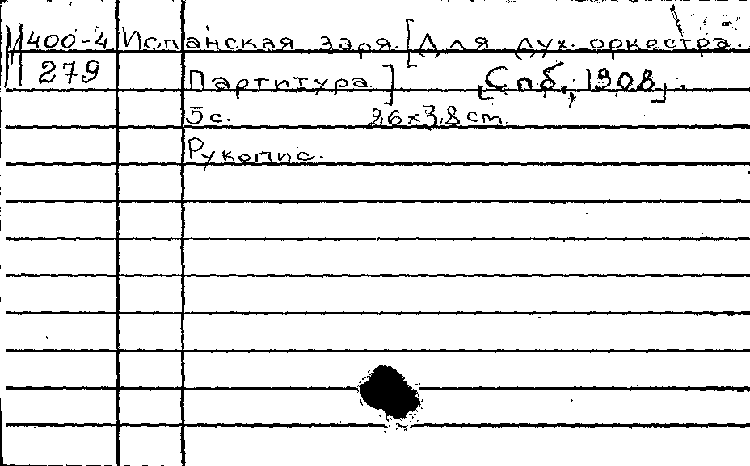 М400-4 Испанская заря. [Для дух. оркестра.
279 Партитура] [Спб., 1908].
5с. 26х38 см.
Рукопис.